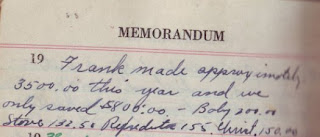 MEMORANDUM
19 Frank made approximately
3500.00 this year and we
only saved $800.00. - Baby 200.00
Stove 132.50 155. 150.00
19